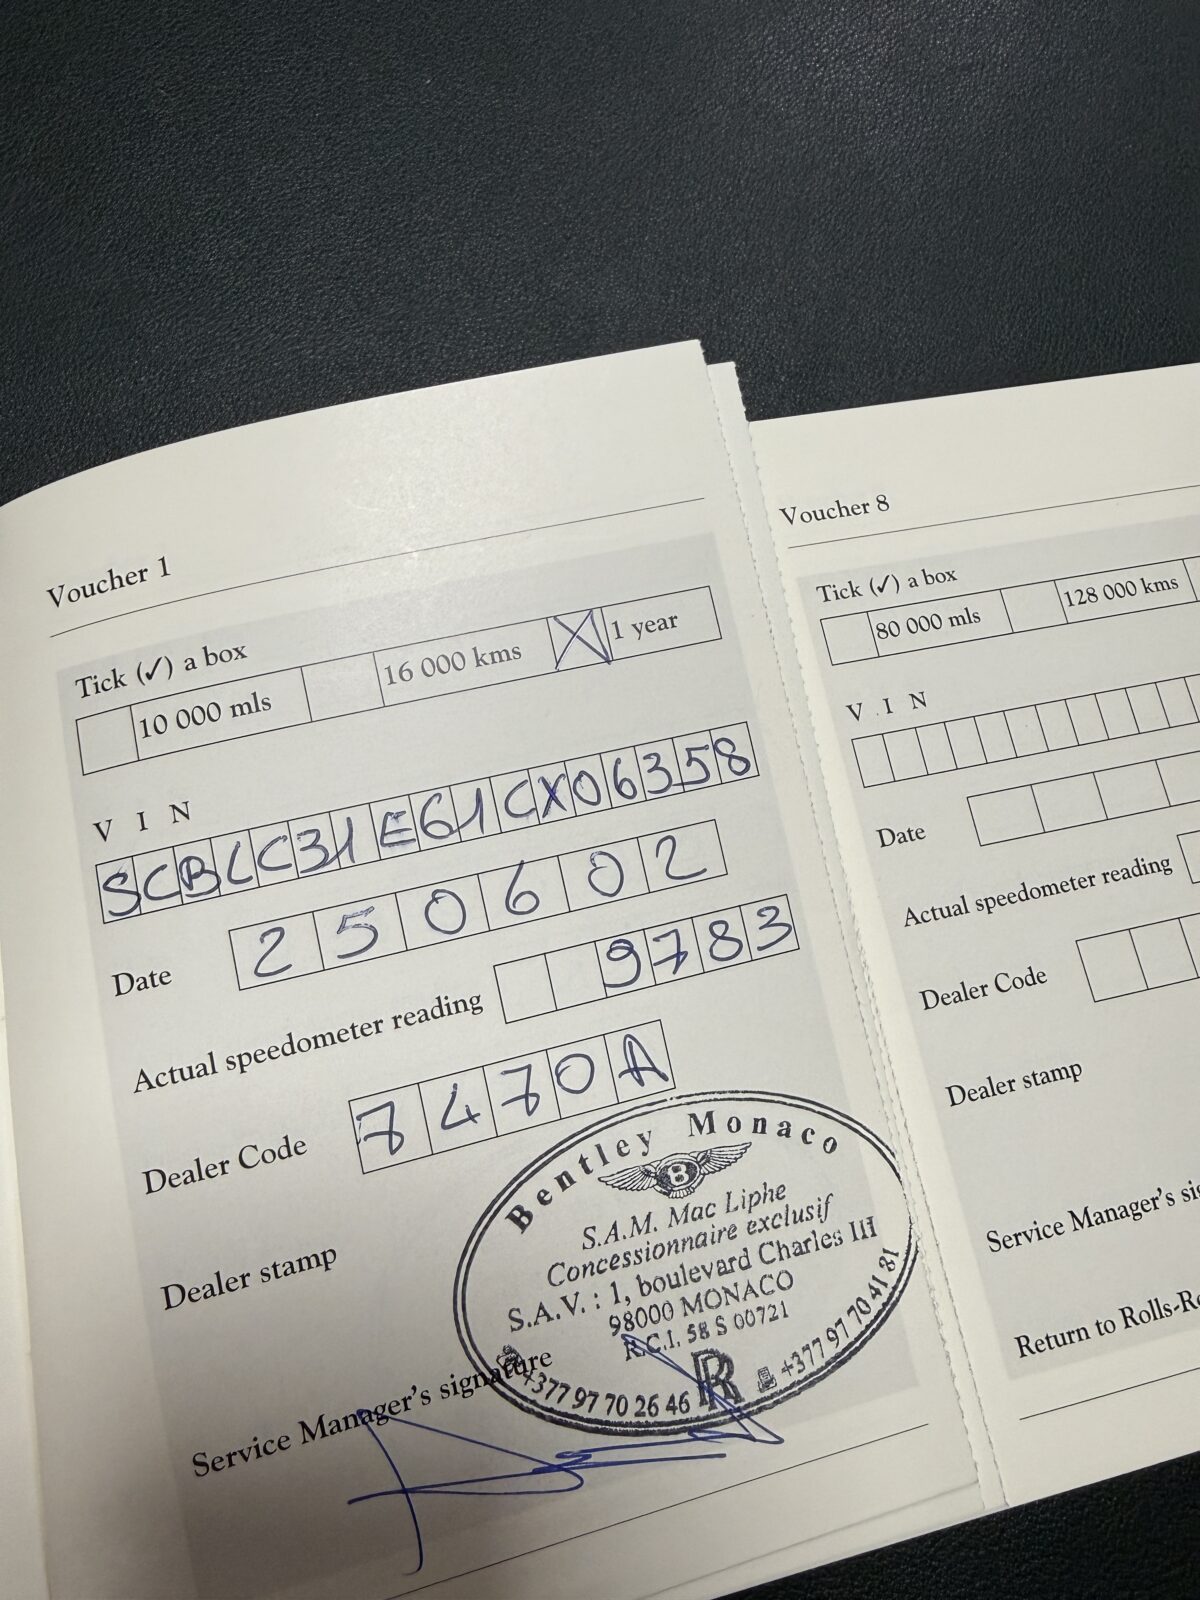 Voucher 1
Tick (✓) a box
10 000 mls
16 000 kms
X
1 year
V I N
SCBLC31E61CX06358
Date
250602
Actual speedometer reading
9783
Dealer Code
7470A
Dealer stamp
Bentley Monaco
B
S.A.M. Mac Liphe
Concessionnaire exclusif
S.A.V. : 1, boulevard Charles III
98000 MONACO
R.C.I. 58 S 00721
+377 97 70 26 46
RR
+377 97 70 41 81
Service Manager's signature
Voucher 8
Tick (✓) a box
80 000 mls
128 000 kms
V I N
Date
Actual speedometer reading
Dealer Code
Dealer stamp
Service Manager's sig
Return to Rolls-Ro